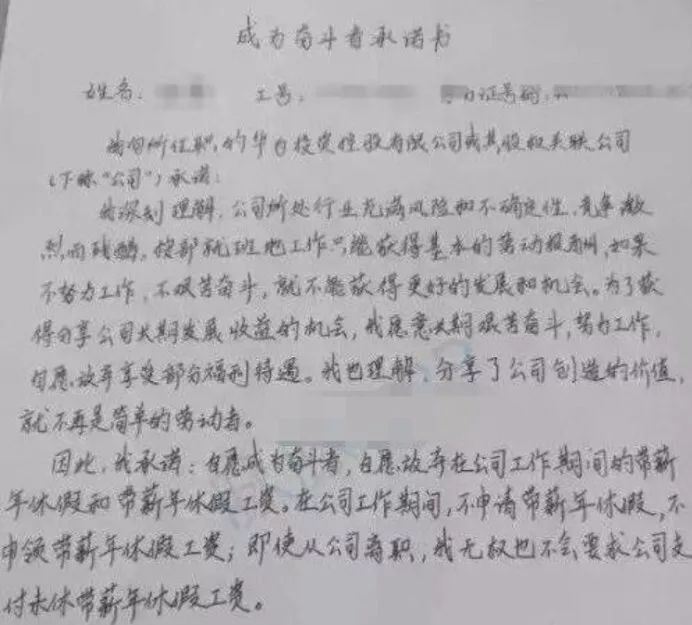 成为奋斗者承诺书
姓名： 工号： 证号码：
我向所任职的华为投资控股有限公司或其股权关联公司
（下称“公司”）承诺：
我深刻理解，公司所处行业充满风险和不确定性，竞争激
烈而残酷，按部就班地工作只能获得基本的劳动报酬，如果
不努力工作，不艰苦奋斗，就不能获得更好的发展和机会。为了获
得分享公司长期发展收益的机会，我愿意长期艰苦奋斗，努力工作，
自愿放弃享受部分福利待遇。我也理解，分享了公司创造的价值，
就不再是简单的劳动者。
因此，我承诺：自愿成为奋斗者，自愿放弃在公司工作期间的带薪
年休假和带薪年休假工资。在公司工作期间，不申请带薪年休假，不
申领带薪年休假工资；即使从公司离职，我无权也不会要求公司支
付未休带薪年休假工资。